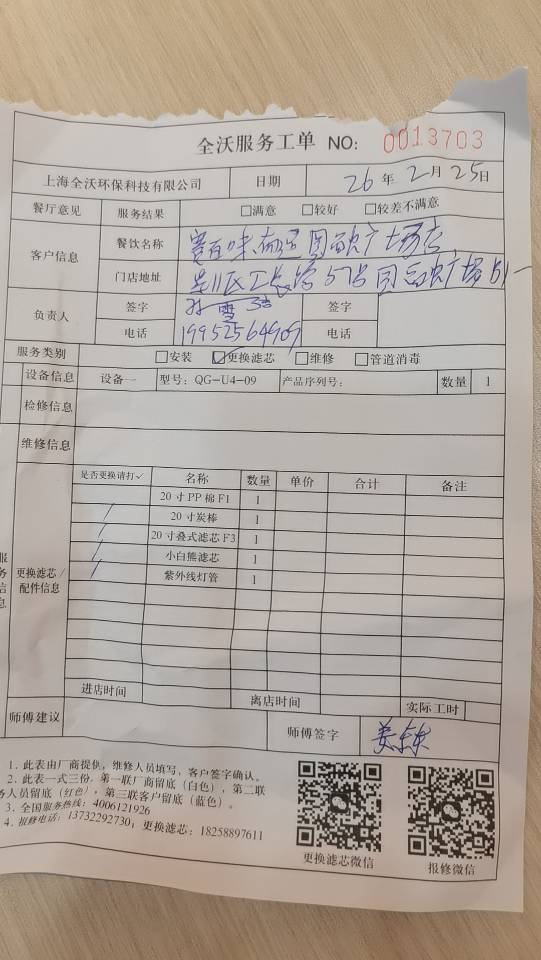 全沃服务工单 NO: 0013703
上海全沃环保科技有限公司 日期 26年2月25日
餐厅意见 服务结果 □满意 □较好 □较差不满意
客户信息 餐饮名称 赛百味 广场店
门店地址 57号 广场
负责人 签字 签字
电话 19952564909 电话
服务类别 □安装 ☑更换滤芯 □维修 □管道消毒
设备信息 设备一 型号: QG-U4-09 产品序列号: 数量 1
检修信息
维修信息
是否更换请打✓ 名称 数量 单价 合计 备注
20寸PP棉F1 1
/ 20寸炭棒 1
/ 20寸叠式滤芯F3 1
/ 小白熊滤芯 1
/ 紫外线灯管 1
服务信息
更换滤芯/
配件信息
进店时间 离店时间 实际工时
师傅建议 师傅签字
1. 此表由厂商提供, 维修人员填写, 客户签字确认。
2. 此表一式三份, 第一联厂商留底(白色), 第二联
务人员留底(红色), 第三联客户留底(蓝色)。
3. 全国服务热线: 4006121926
4. 报修电话: 13732292730; 更换滤芯: 18258897611
更换滤芯微信 报修微信